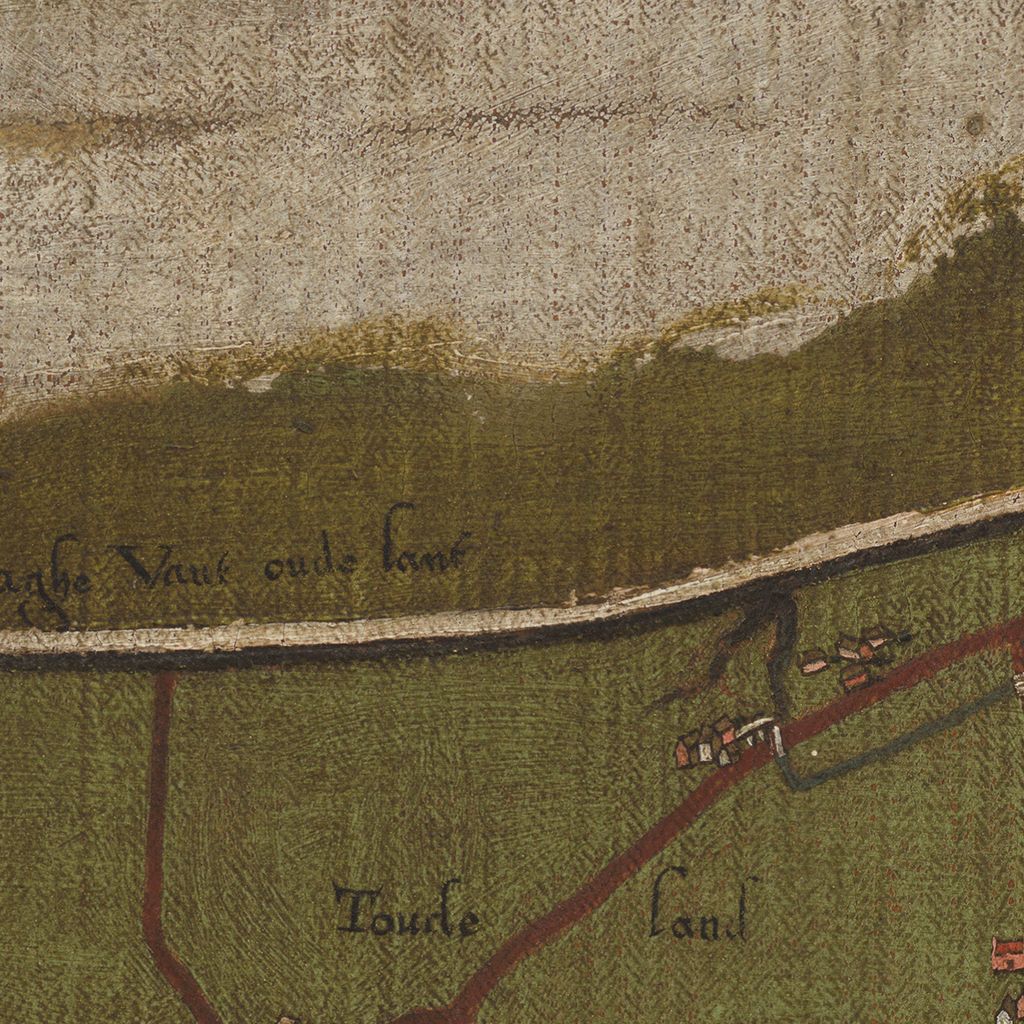 aghe Vant oude lant
Toude land